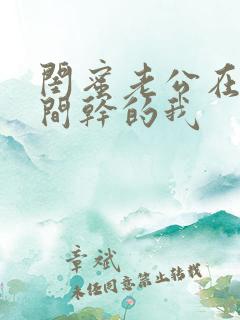 閨蜜老公在
間幹的我
章斌
未经同意禁止转载